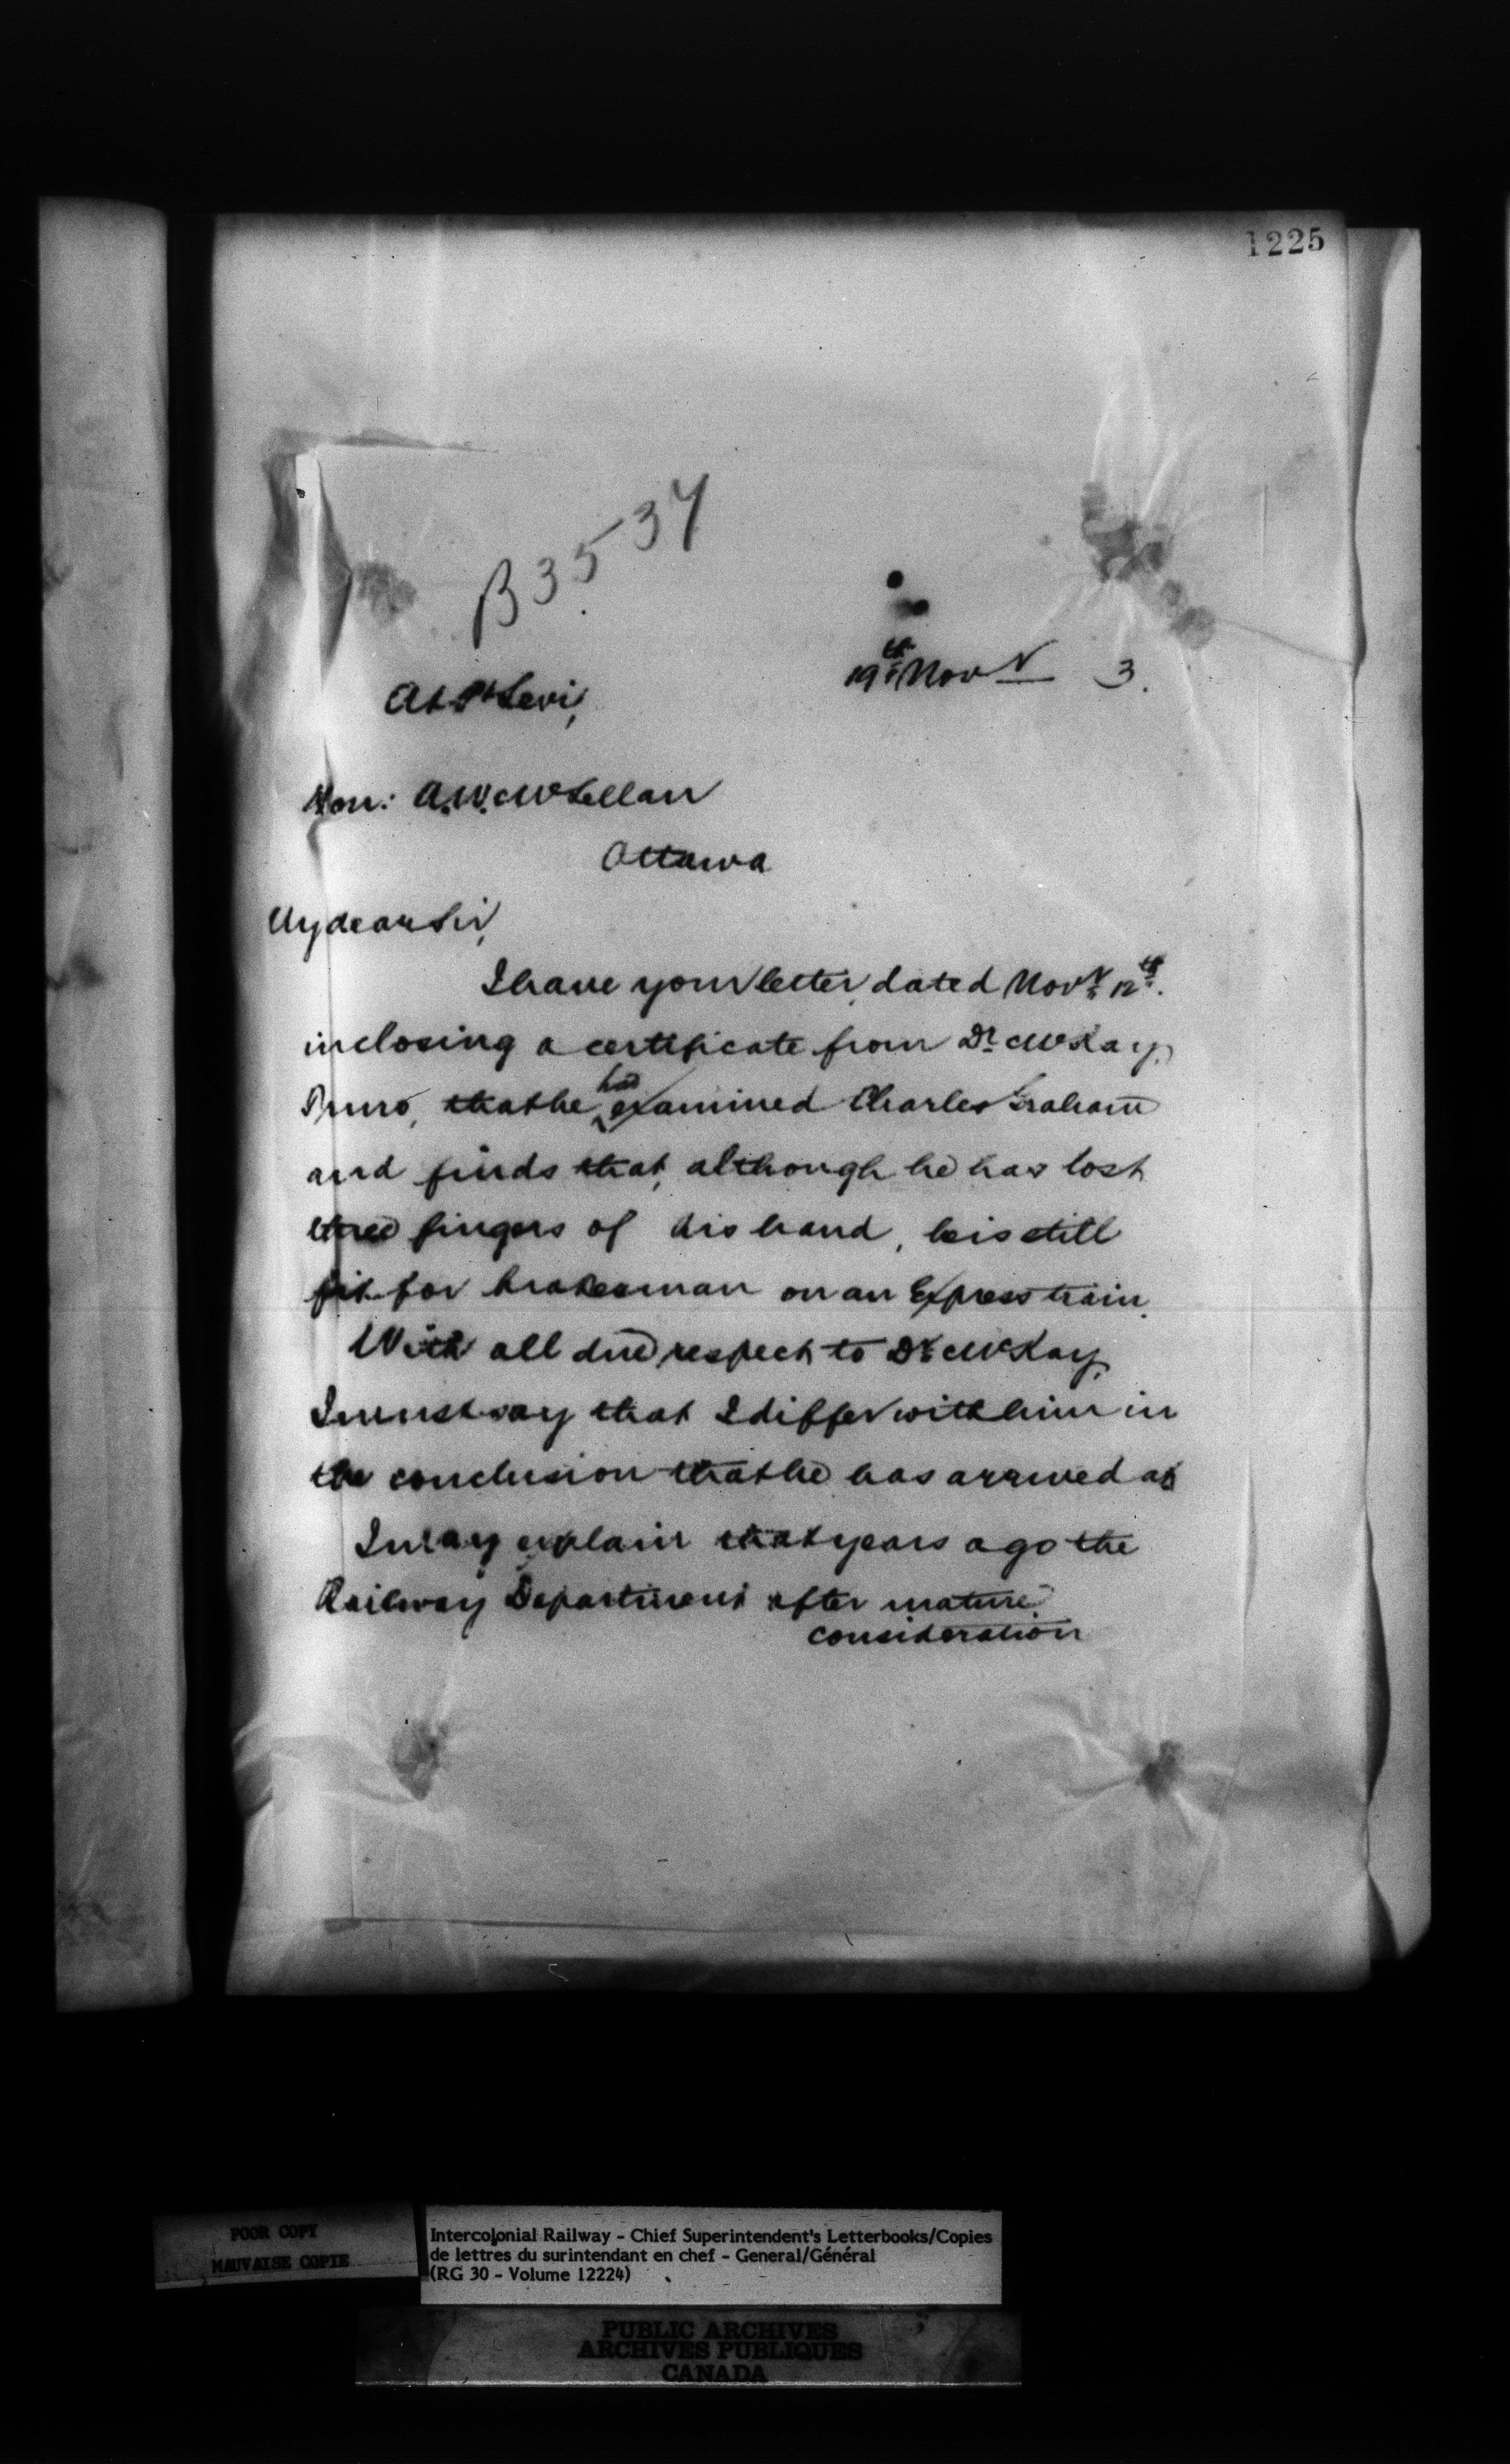 1225
B3537
19th Novr 3.
At Pt Levi,
Hon: A.W. McLellan
Ottawa
My dear Sir,
I have your letter, dated Novr 12th.
inclosing a certificate from Dr McKay,
Truro, that he had examined Charles Graham
and finds that, although he has lost
three fingers of his hand, he is still
fit for brakesman on an Express train.
With all due respect to Dr McKay,
I must say that I differ with him in
the conclusion that he has arrived at
I may explain that years ago the
Railway Department after mature
consideration
POOR COPY
MAUVAISE COPIE
Intercolonial Railway - Chief Superintendent's Letterbooks/Copies
de lettres du surintendant en chef - General/Général
(RG 30 - Volume 12224)
PUBLIC ARCHIVES
ARCHIVES PUBLIQUES
CANADA